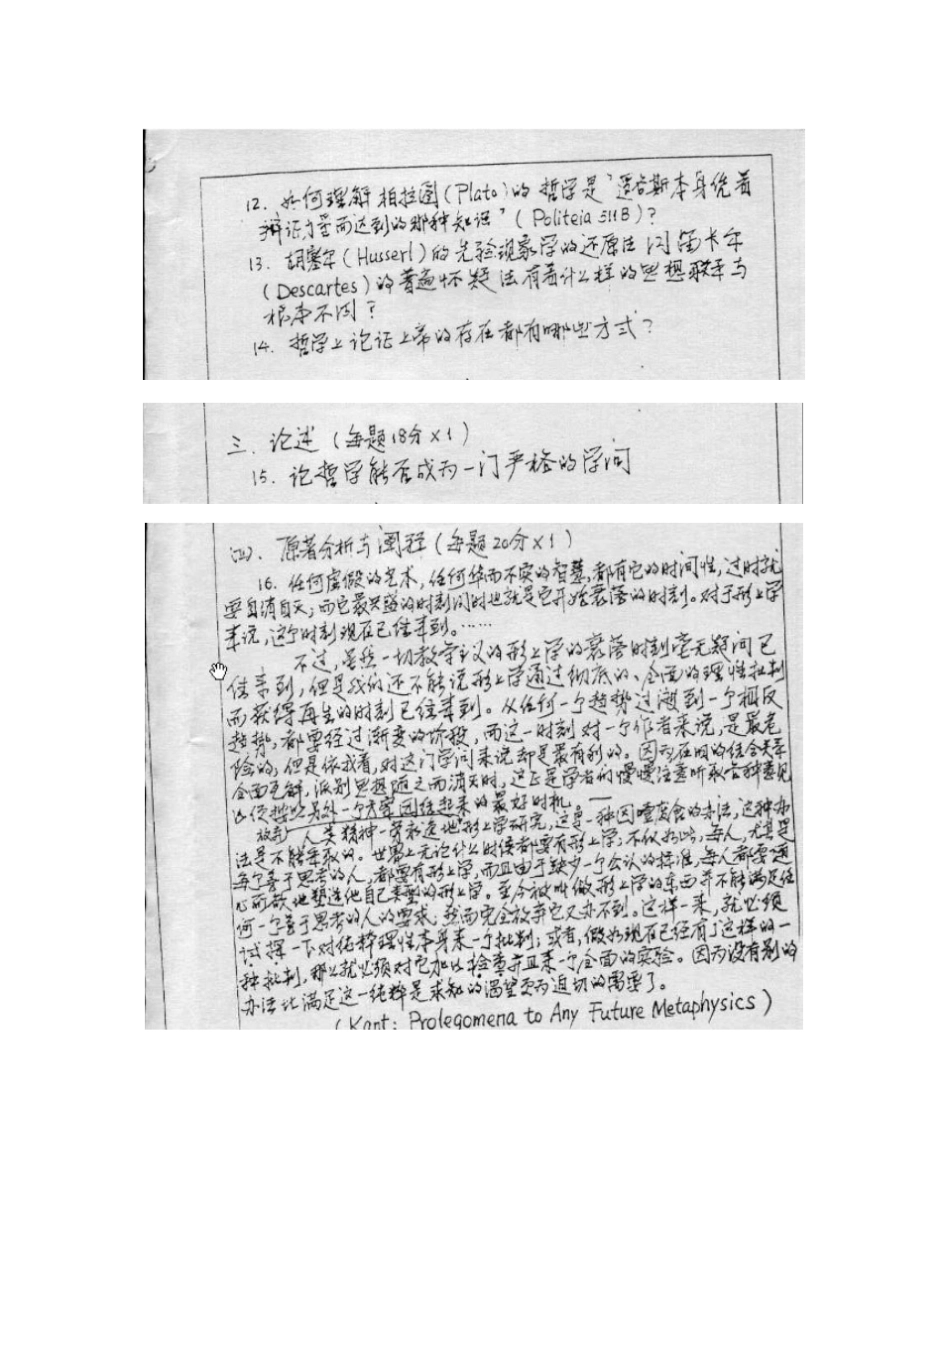 12. 如何理解柏拉图(Plato)的哲学是“逻各斯本身凭着
辩证力量而达到的那种知识”(Politeia 511B)?
13. 胡塞尔(Husserl)的先验现象学的还原法同笛卡尔
(Descartes)的普遍怀疑法有着什么样的思想联系与
根本不同?
14. 哲学上论证上帝的存在都有哪些方式?
三. 论述(每题18分×1)
15. 论哲学能否成为一门严格的学问
四. 原著分析与阐释(每题20分×1)
16. 任何虚假的艺术,任何华而不实的智慧,都有它的时间性,过时就
要自消自灭;而它最兴盛的时刻同时也就是它开始衰落的时刻。对于形上学
来说,这个时刻现在已经来到。……
不过,虽然一切教学主义的形上学的衰落时刻毫无疑问已
经来到,但是我们还不能说形上学通过彻底的、全面的理性批判
而获得再生的时刻已经来到。从任何一个趋势过渡到一个相反
趋势,都要经过渐变的阶段,而这一时刻对一个作者来说,是最危
险的,但是依我看,对这门学问来说却是最有利的。因为在旧的结合关系
全面瓦解,派别思想随之而消灭时,这正是学者们慢慢注意听取各种意见
以便按照另外一个方案团结起来的最好时机。——
人类精神一劳永逸地放弃形上学研究,这是一种因噎废食的办法,这种办
法是不能采取的。世界上无论什么时候都要有形上学;不仅如此,每人,尤其是
每个善于思考的人,都要有形上学,而且由于缺少一个公认的标准,每人都要随
心所欲地塑造他自己类型的形上学。至今被叫做形上学的东西并不能满足任
何一个善于思考的人的要求;然而完全放弃它又办不到。这样一来,就必须
试探一下对纯粹理性本身来一个批判;或者,假如现在已经有了这样的一
种批判,那么就必须对它加以检查并且来一个全面的实验。因为没有别的
办法比满足这一纯粹是求知的渴望更为迫切的需要了。
(Kant: Prolegomena to Any Future Metaphysics)